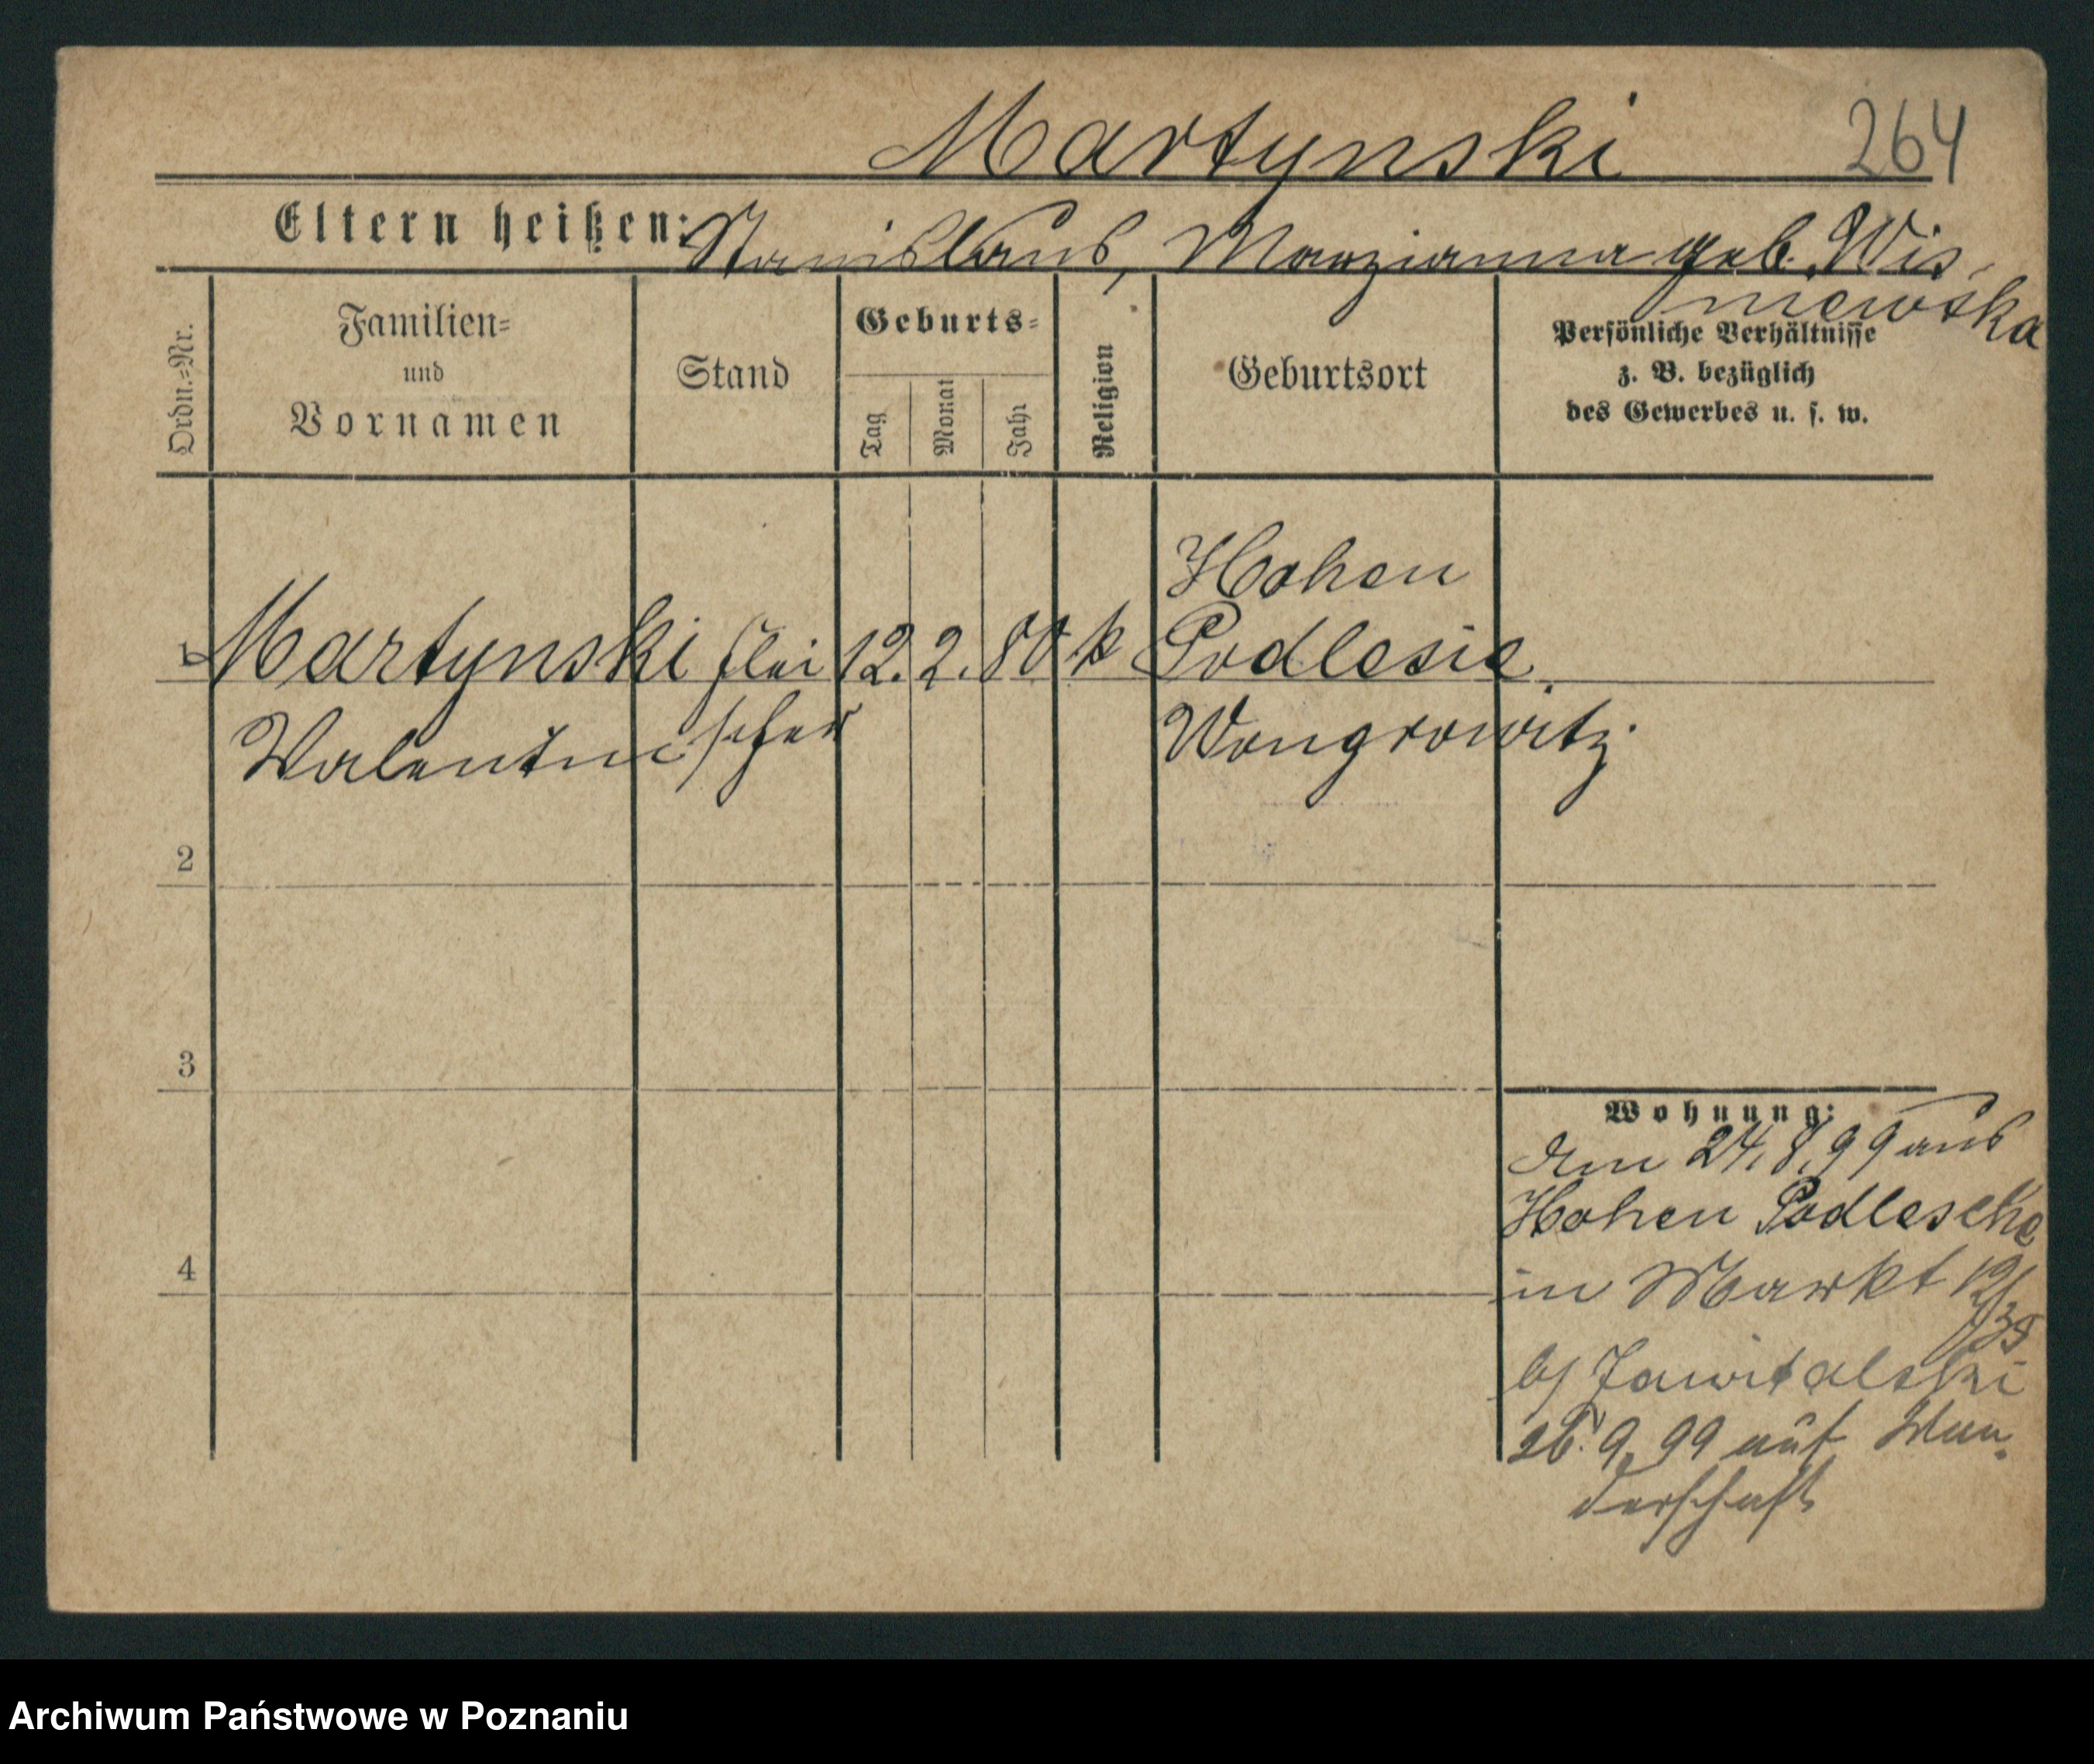 Martynski 264
Eltern heißen: Stanislaus, Marzianna geb. Wis-
niewska
Ordn.=Nr.
Familien=
und
Vornamen
Stand
Geburts=
Tag
Monat
Jahr
Religion
Geburtsort
Persönliche Verhältnisse
z. B. bezüglich
des Gewerbes u. s. w.
Hohen
1 Martynski Flei 12. 2. 80 k Podlesie.
Valentin scher Wongrowitz
2
3
4
Wohnung:
Am 24.8.99 aus
Hohen Podlesche
in Markt
b/
26.9.99 auf Wan-
derschaft
Archiwum Państwowe w Poznaniu